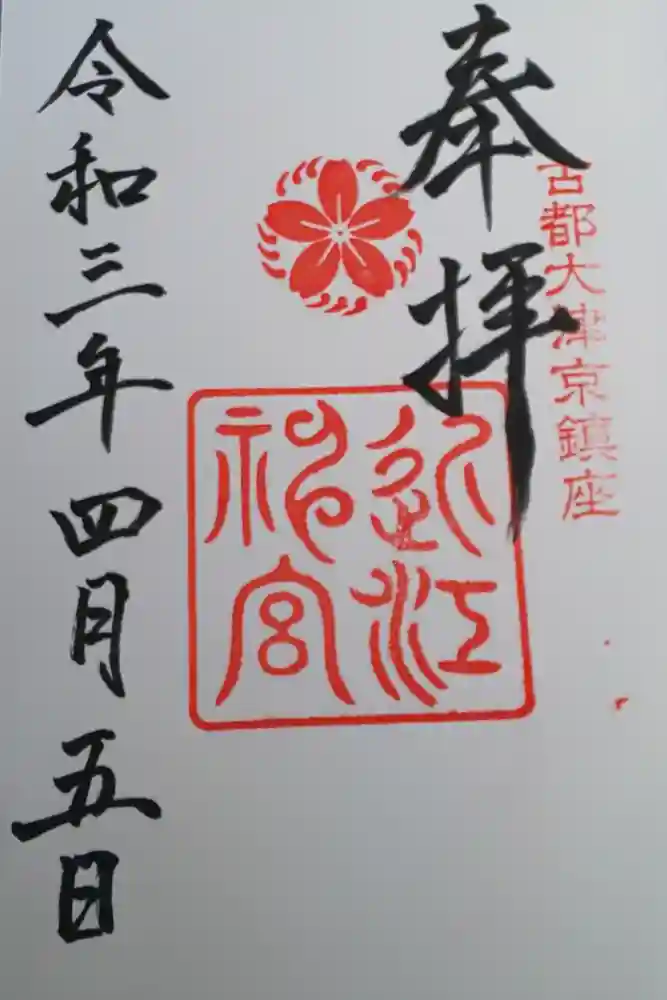 古都大津京鎮座
奉拝
近江
神宮
令和三年四月五日